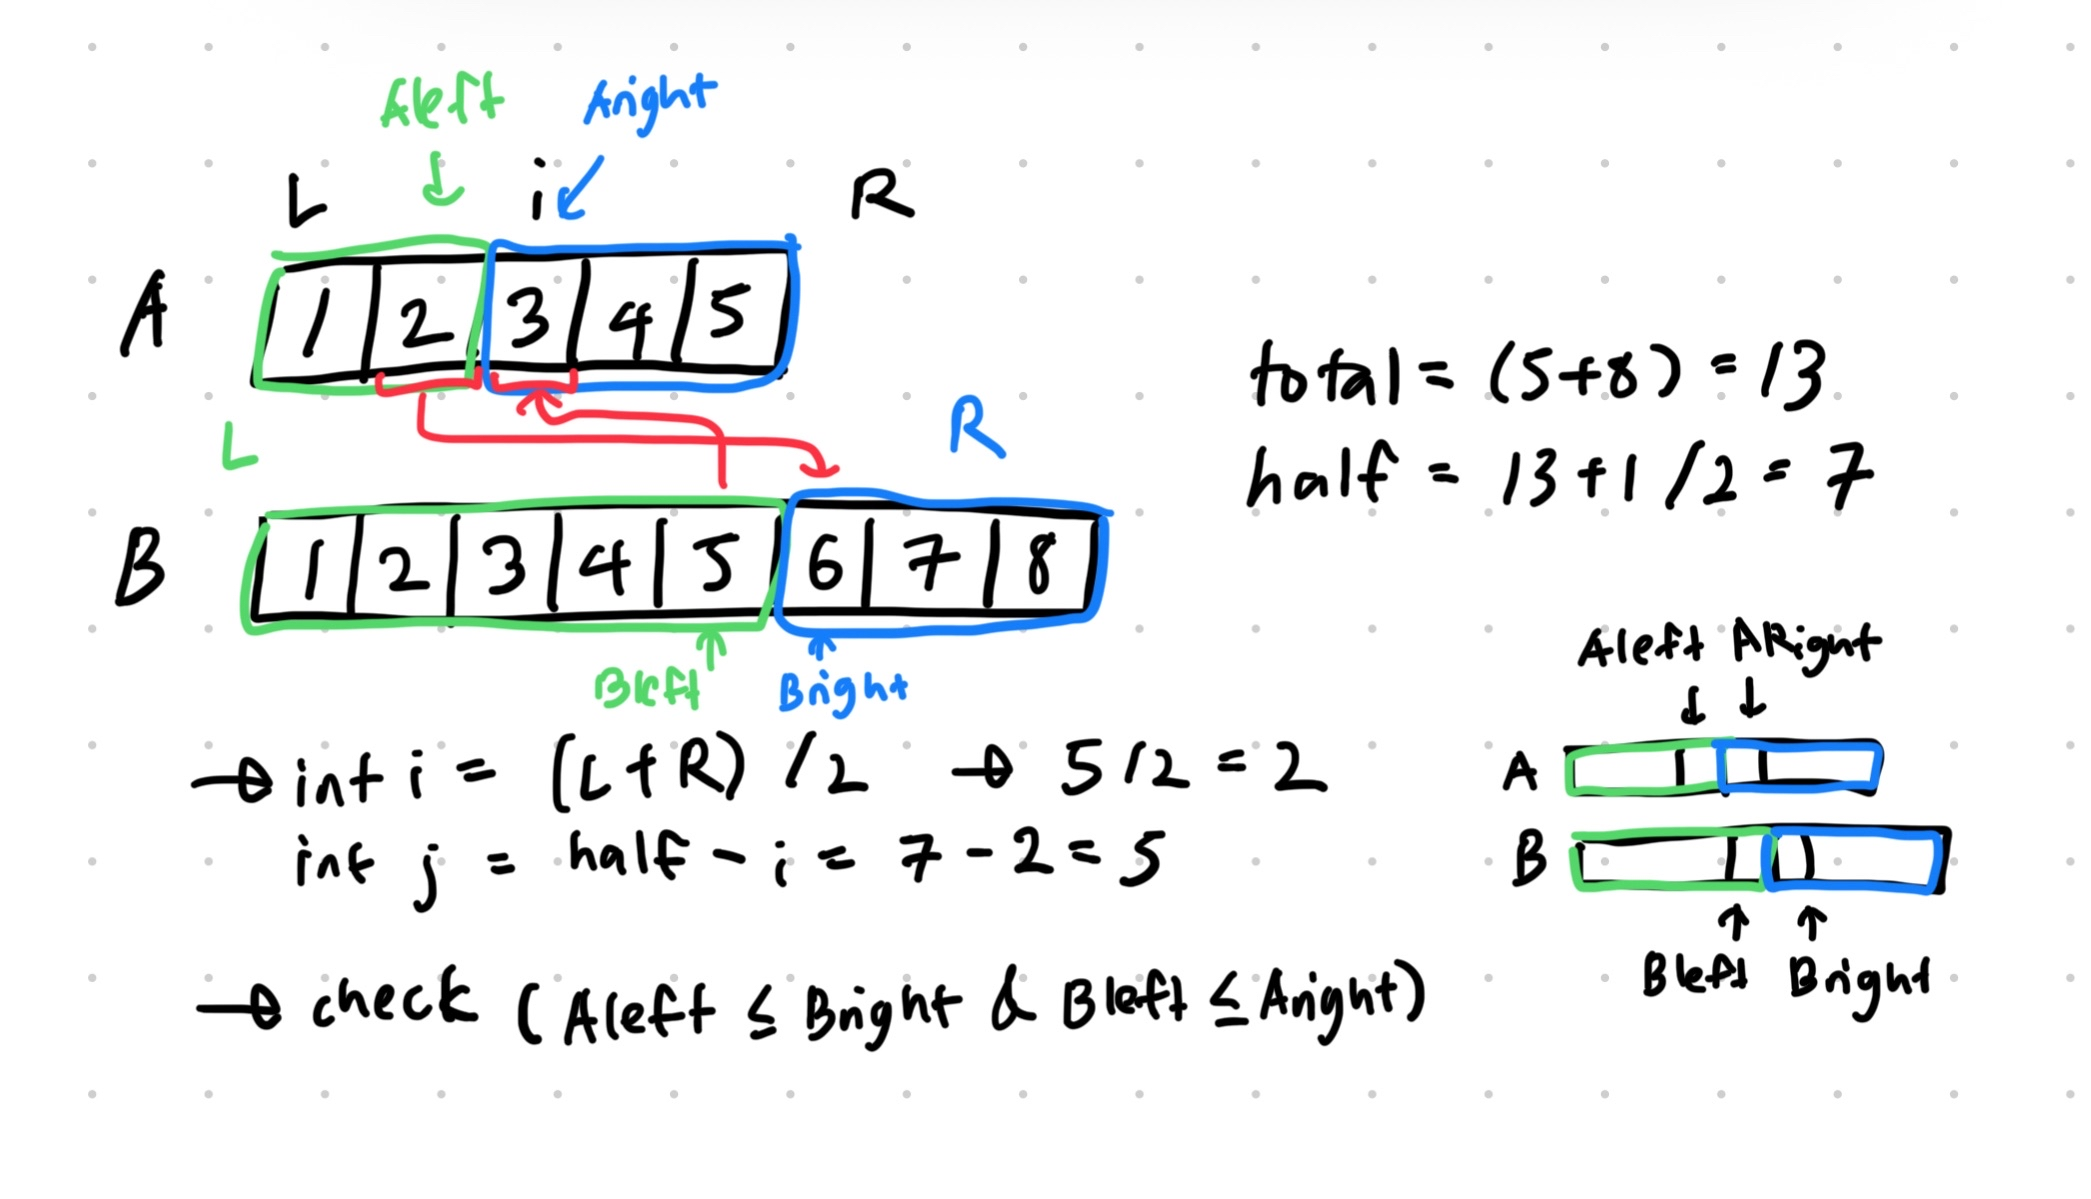 Aleft Aright
L i R
A 1 2 3 4 5
total = (5+8) = 13
L R
half = 13+1 /2 = 7
B 1 2 3 4 5 6 7 8
Aleft ARight
Bleft Bright
→ int i = (L+R) /2 → 5/2 = 2
A
int j = half - i = 7 - 2 = 5
B
Bleft Bright
→ check (Aleft ≤ Bright & Bleft ≤ Aright)